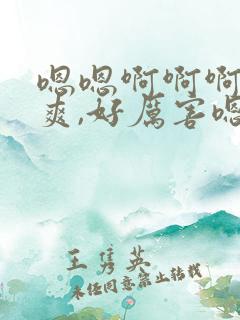 嗯嗯啊啊啊
爽,好厉害嗯
王隽英
未经同意禁止转载